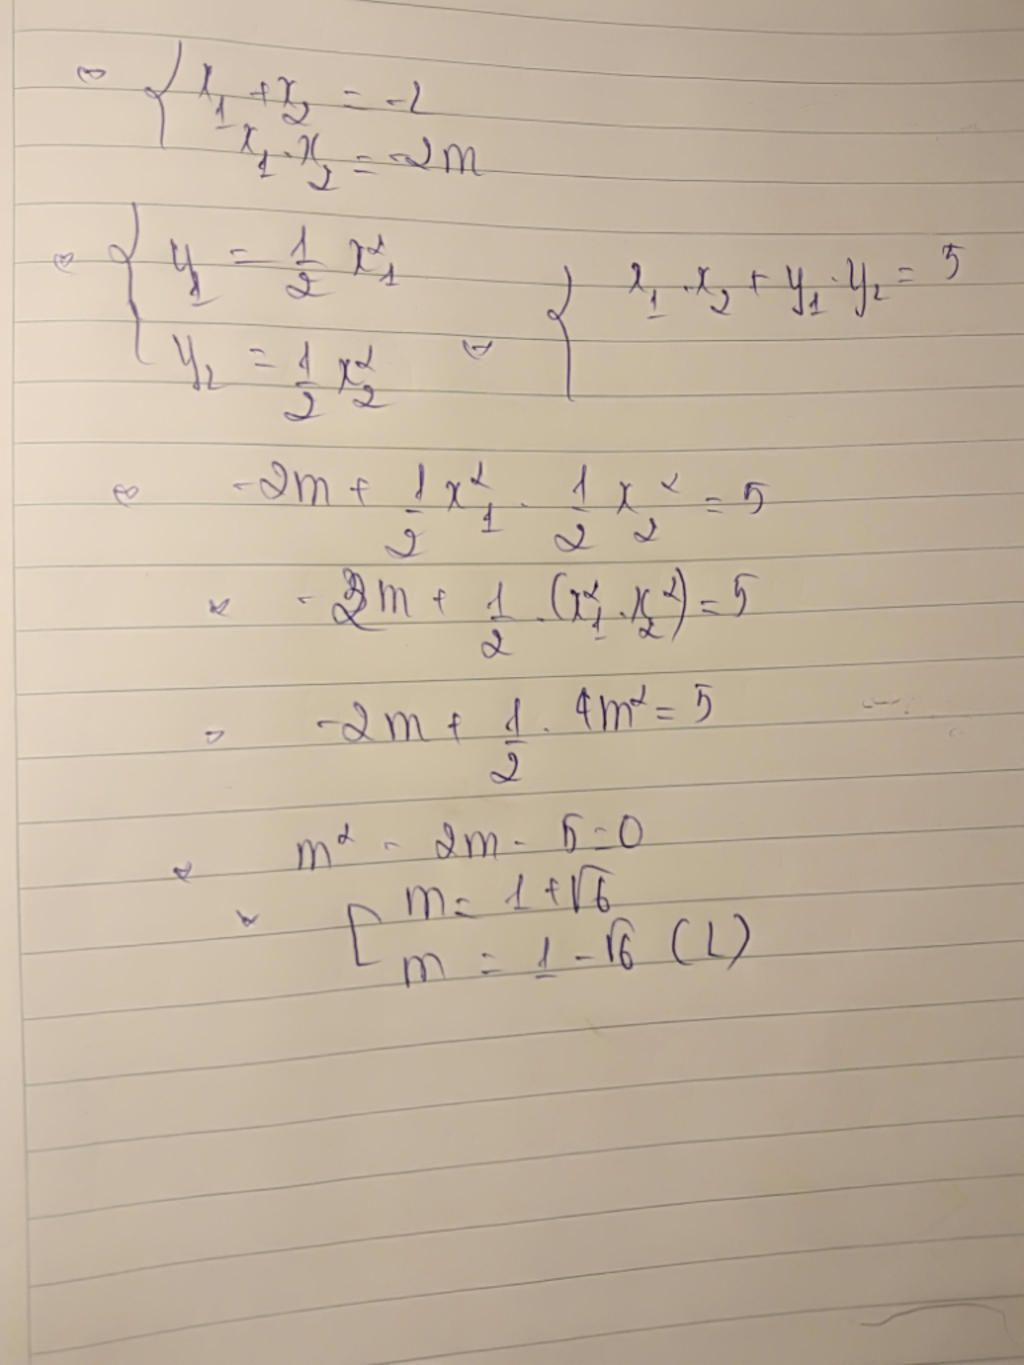 ⇔ { x₁ + x₂ = -2
x₁ . x₂ = -2m
⇔ { y₁ = 1/2 x₁²
y₂ = 1/2 x₂² ⇔ { x₁ . x₂ + y₁ . y₂ = 5
⇔ -2m + 1/2 x₁² . 1/2 x₂² = 5
⇔ -2m + 1/2 . (x₁² . x₂²) = 5
⇔ -2m + 1/2 . 4m² = 5
⇔ m² - 2m - 5 = 0
⇔ [ m = 1 + √6
m = 1 - √6 (L)